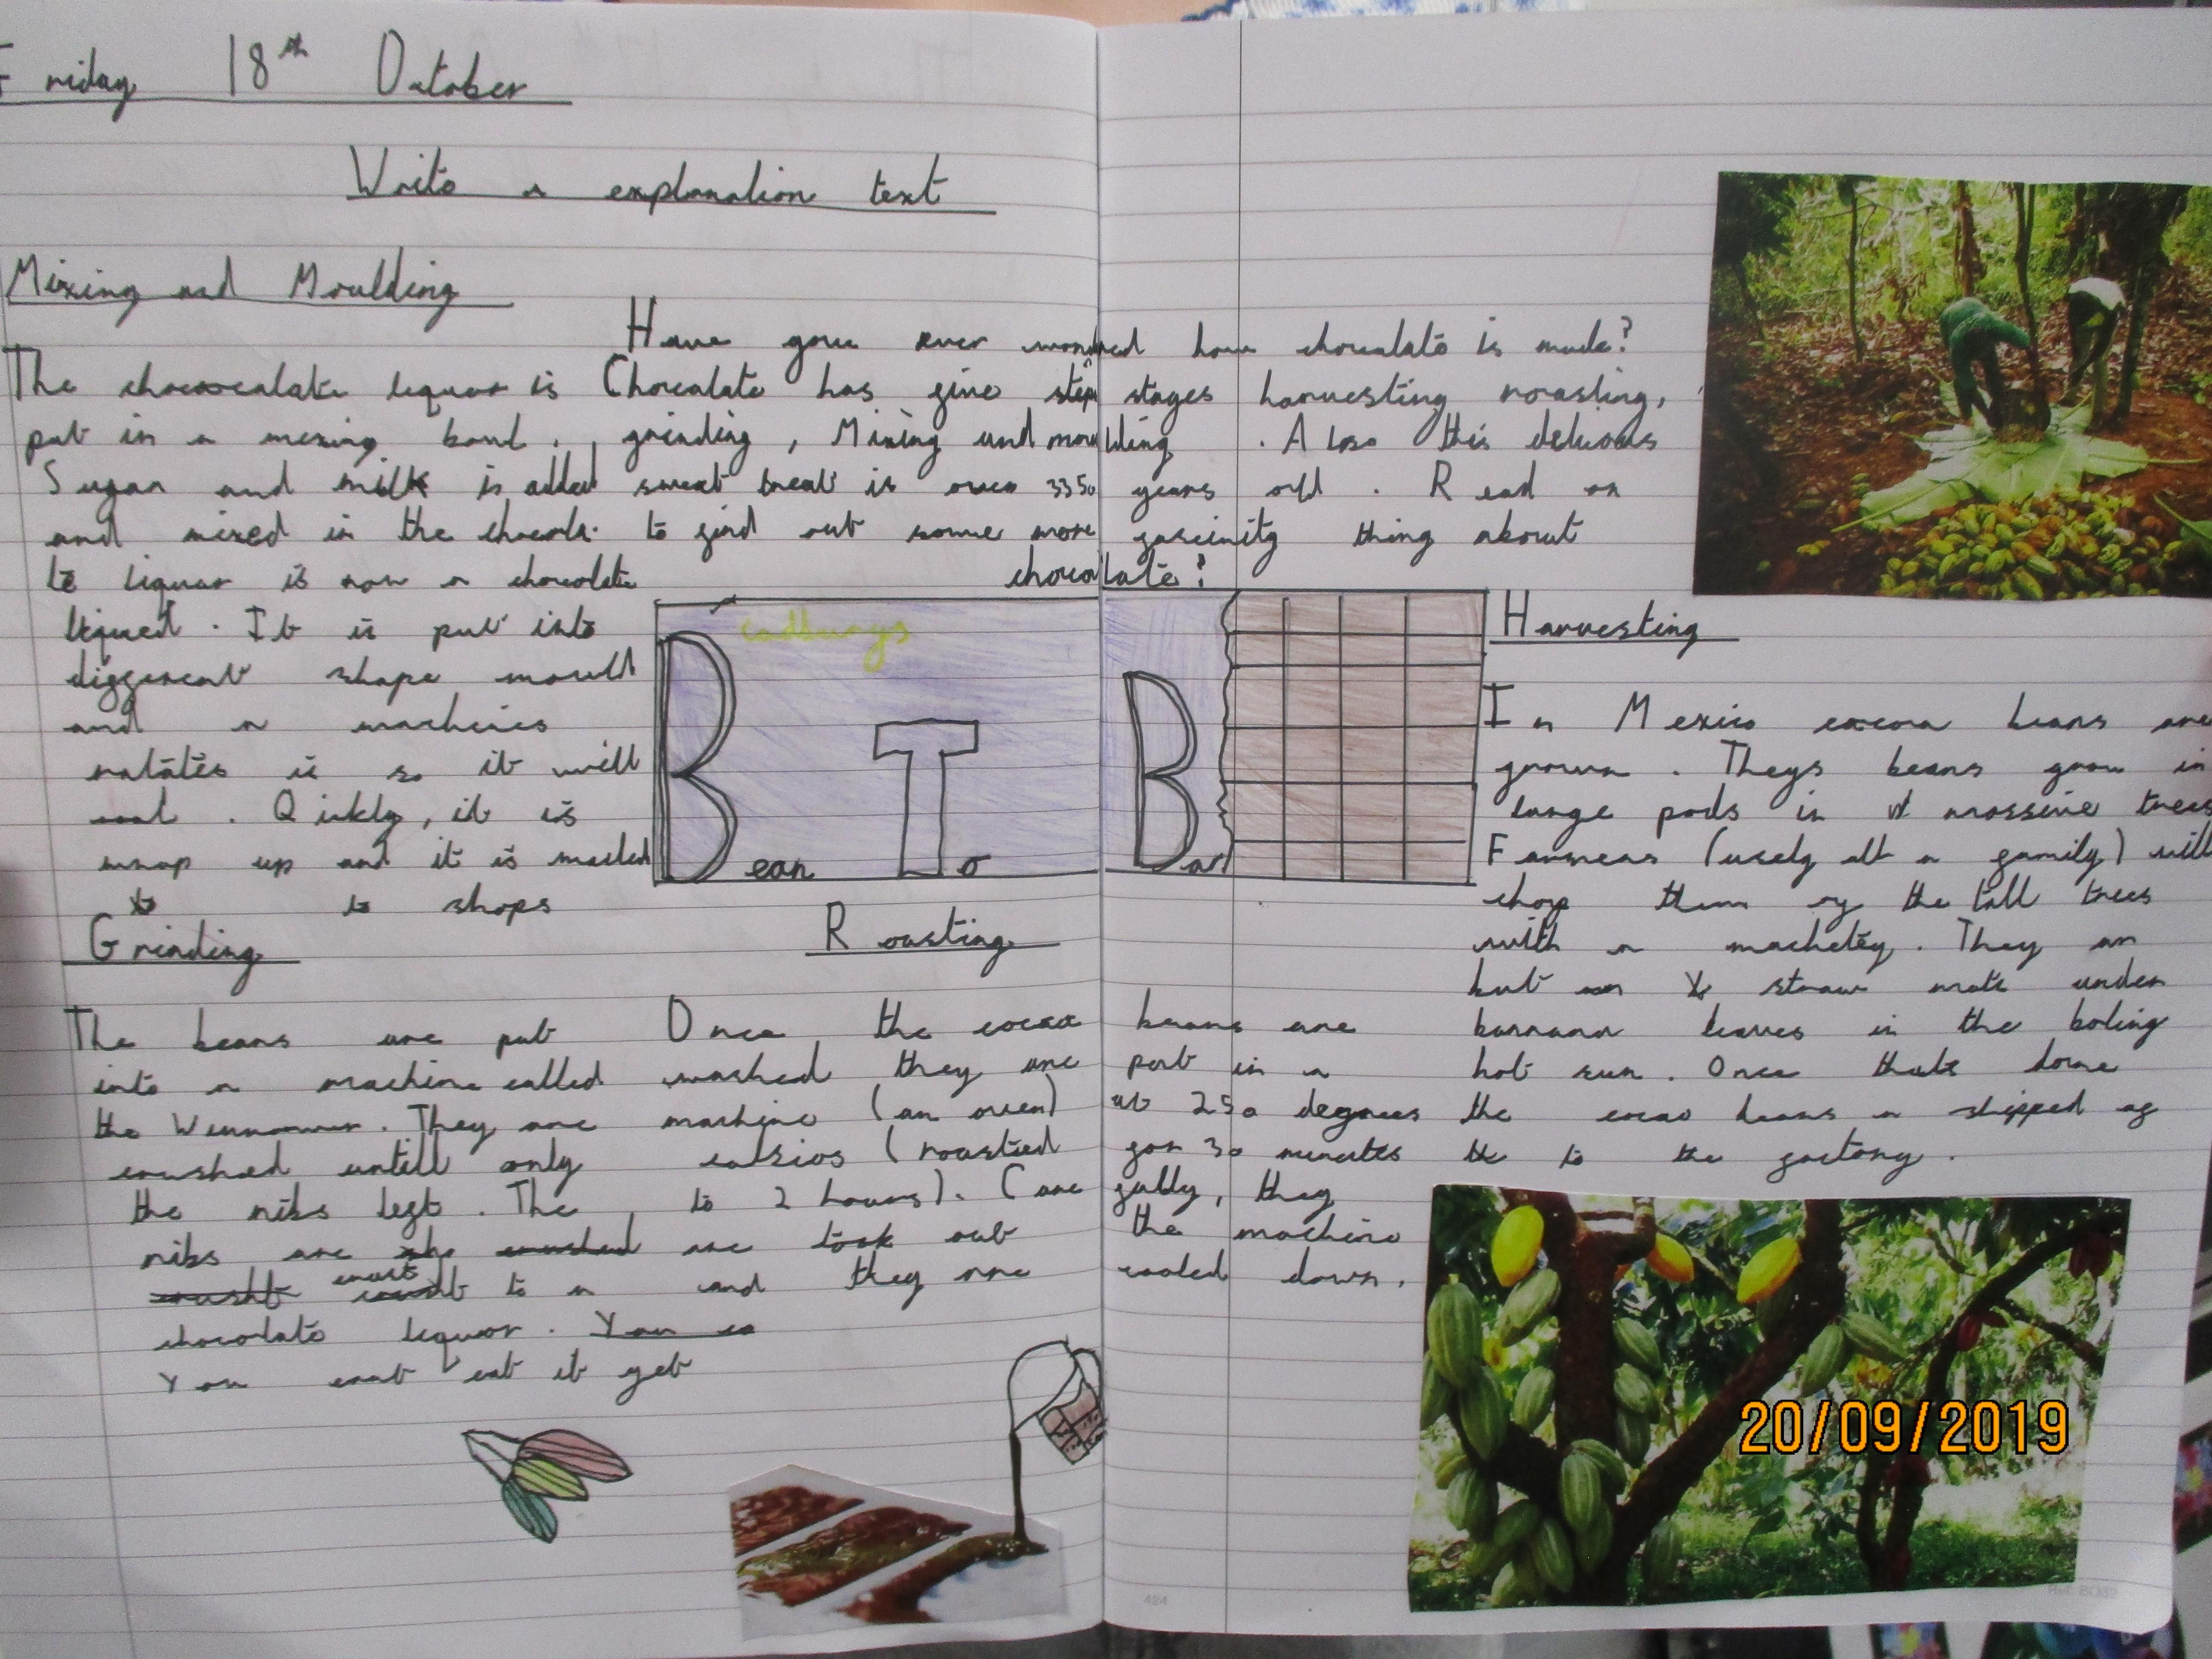 Friday 18th October
Write a explanation text
Have you ever wondred how chocolate is made?
Chocolate has five step stages harvesting roasting,
grinding, Mixing and moulding. Also this delicious
sweat treat is over 3350 years old. Read on
to find out some more fascinity thing about
chocolate?
Mixing and Moulding
The chococalate liquor is
put in a mixing bowl.
Sugar and milk is added
and mixed in the chocola-
te liquor is now a chocolate
liqued. It is put into
different shape mould
and a machies
rotates is so it will
cool. Qickly, it is
wrap up and it is mailed
to shops
cadburys
Bean To Bar
Harvesting
In Mexico cocoa beans are
grown. Theys beans grow in
large pods in massive trees
Farmers (usely all a family) will
chop them of the tall trees
with a machetey. They
straw mats under
bannana leaves in the boling
hot sun. Once thats done
the cocao beans a shipped of
to the factory.
Grinding
The beans are put
into a machine called
the Winnower. They are
crushed untill only
the nibs left. The
nibs are crushed
to a
chocolate liquor. You
You cant eat it yet
Roasting
Once the cocoa beans are
washed they are put in a
machine (an oven) at 250 degrees
celsios (roastied for 30 minutes
to 2 hours). Carefully, they
are took out the machine
and they are cooled down.
424
20/09/2019